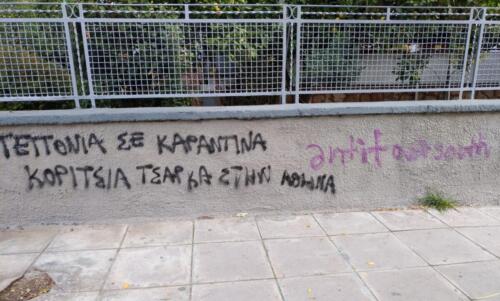 ΓΕΙΤΟΝΙΑ ΣΕ ΚΑΡΑΝΤΙΝΑ
ΚΟΡΙΤΣΙΑ ΤΣΑΡΚΑ ΣΤΗΝ ΑΘΗΝΑ
antifa south